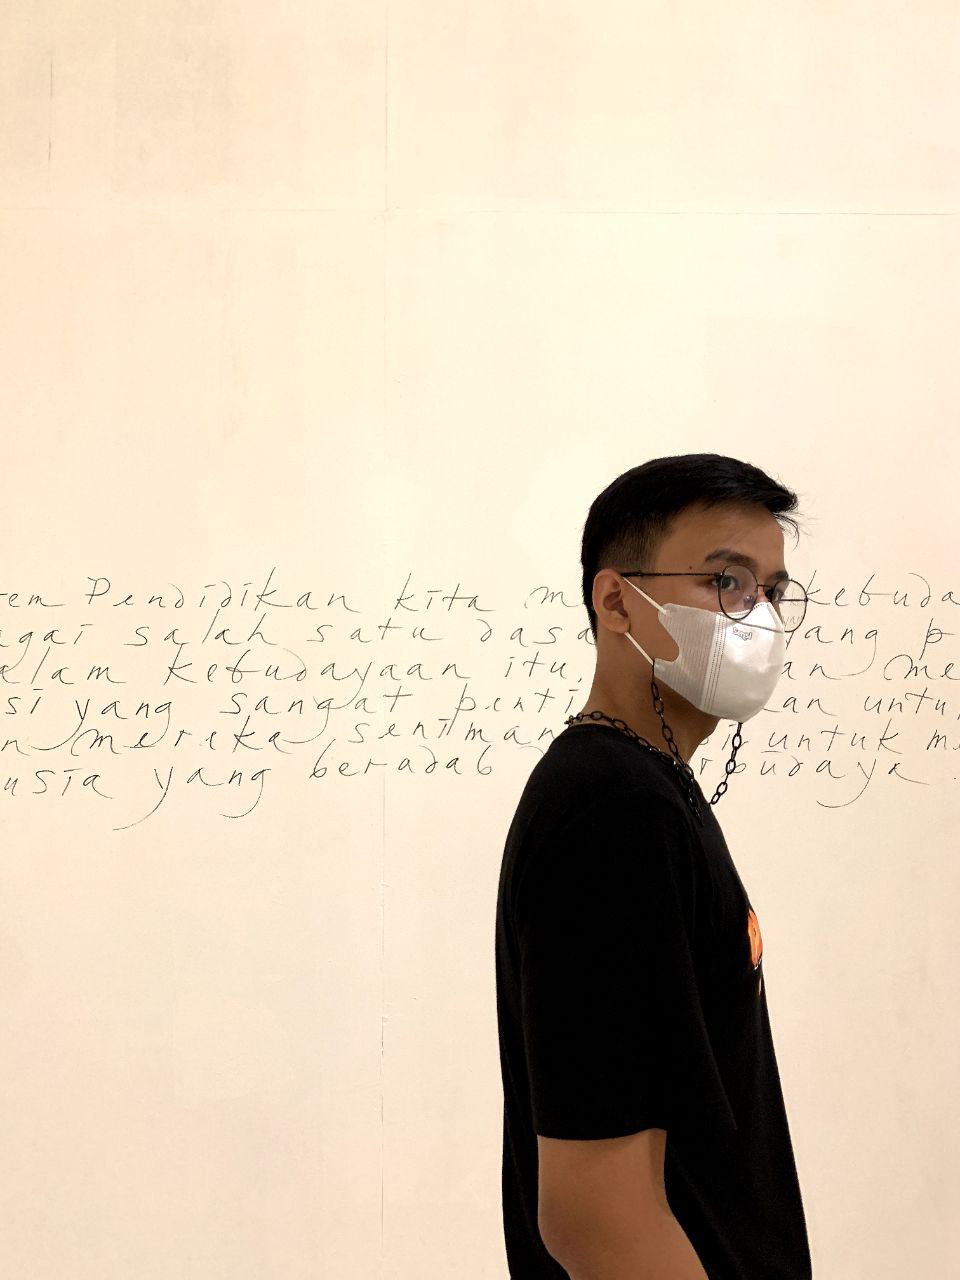 tem Pendidikan kita m kebuda
agai salah satu dasa ang p
alam kebudayaan itu, an me
si yang sangat penti kan untu
n mereka seniman untuk m
usia yang beradab rbudaya.